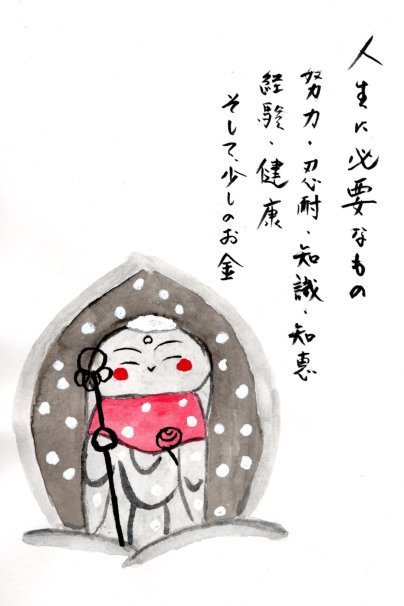 人生に必要なもの
努力・忍耐・知識・知恵
経験・健康
そして、少しのお金